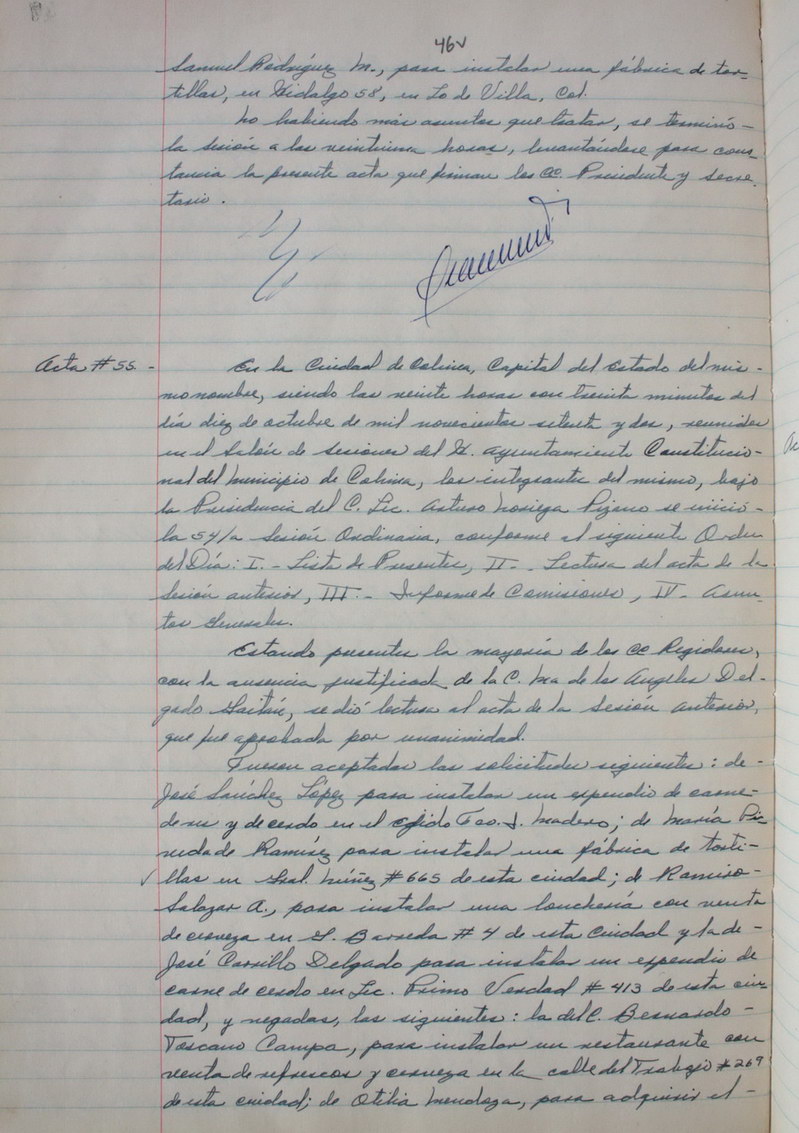 46v
Samuel Rodríguez M., para instalar una fábrica de tor-
tillas, en Hidalgo 58, en Lo de Villa, Col.
No habiendo más asuntos que tratar, se terminó-
la sesión a las veintiuna horas, levantándose para cons-
tancia la presente acta que firman los CC. Presidente y Secre-
tario.
Acta # 55.-
En la Ciudad de Colima, Capital del Estado del mis-
mo nombre, siendo las veinte horas con treinta minutos del
día diez de octubre de mil novecientos setenta y dos, reunidos
en el Salón de Sesiones del H. Ayuntamiento Constitucio-
nal del Municipio de Colima, los integrantes del mismo, bajo
la Presidencia del C. Lic. Arturo Noriega Pizano se inició-
la 54/a Sesión Ordinaria, conforme al siguiente Orden
del Día: I.- Lista de Presentes, II.- Lectura del acta de la
Sesión anterior, III.- Informe de Comisiones, IV- Asun-
tos Generales.
Estando presentes la mayoría de los CC Regidores,
con la ausencia justificada de la C. Ma de los Angeles Del-
gado Gaitán, se dió lectura al acta de la Sesión anterior,
que fue aprobada por unanimidad.
Fueron aceptadas las solicitudes siguientes: de-
José Sánchez López para instalar un expendio de carne-
de res y de cerdo en el ejido Fco. I. Madero; de María Pi-
neda de Ramírez para instalar una fábrica de torti-
llas en Gral. Núñez # 665 de esta ciudad; de Ramiro-
Salazar A., para instalar una lonchería con venta
de cerveza en G. Barreda # 4 de esta Ciudad y la de-
José Carrillo Delgado para instalar un expendio de
carne de cerdo en Lic. Primo Verdad # 413 de esta ciu-
dad, y negadas, las siguientes: la del C. Bernardo-
Toscano Campa, para instalar un restaurante con
venta de refrescos y cerveza en la calle del Trabajo # 269
de esta ciudad; de Otilia Mendoza, para adquirir el-